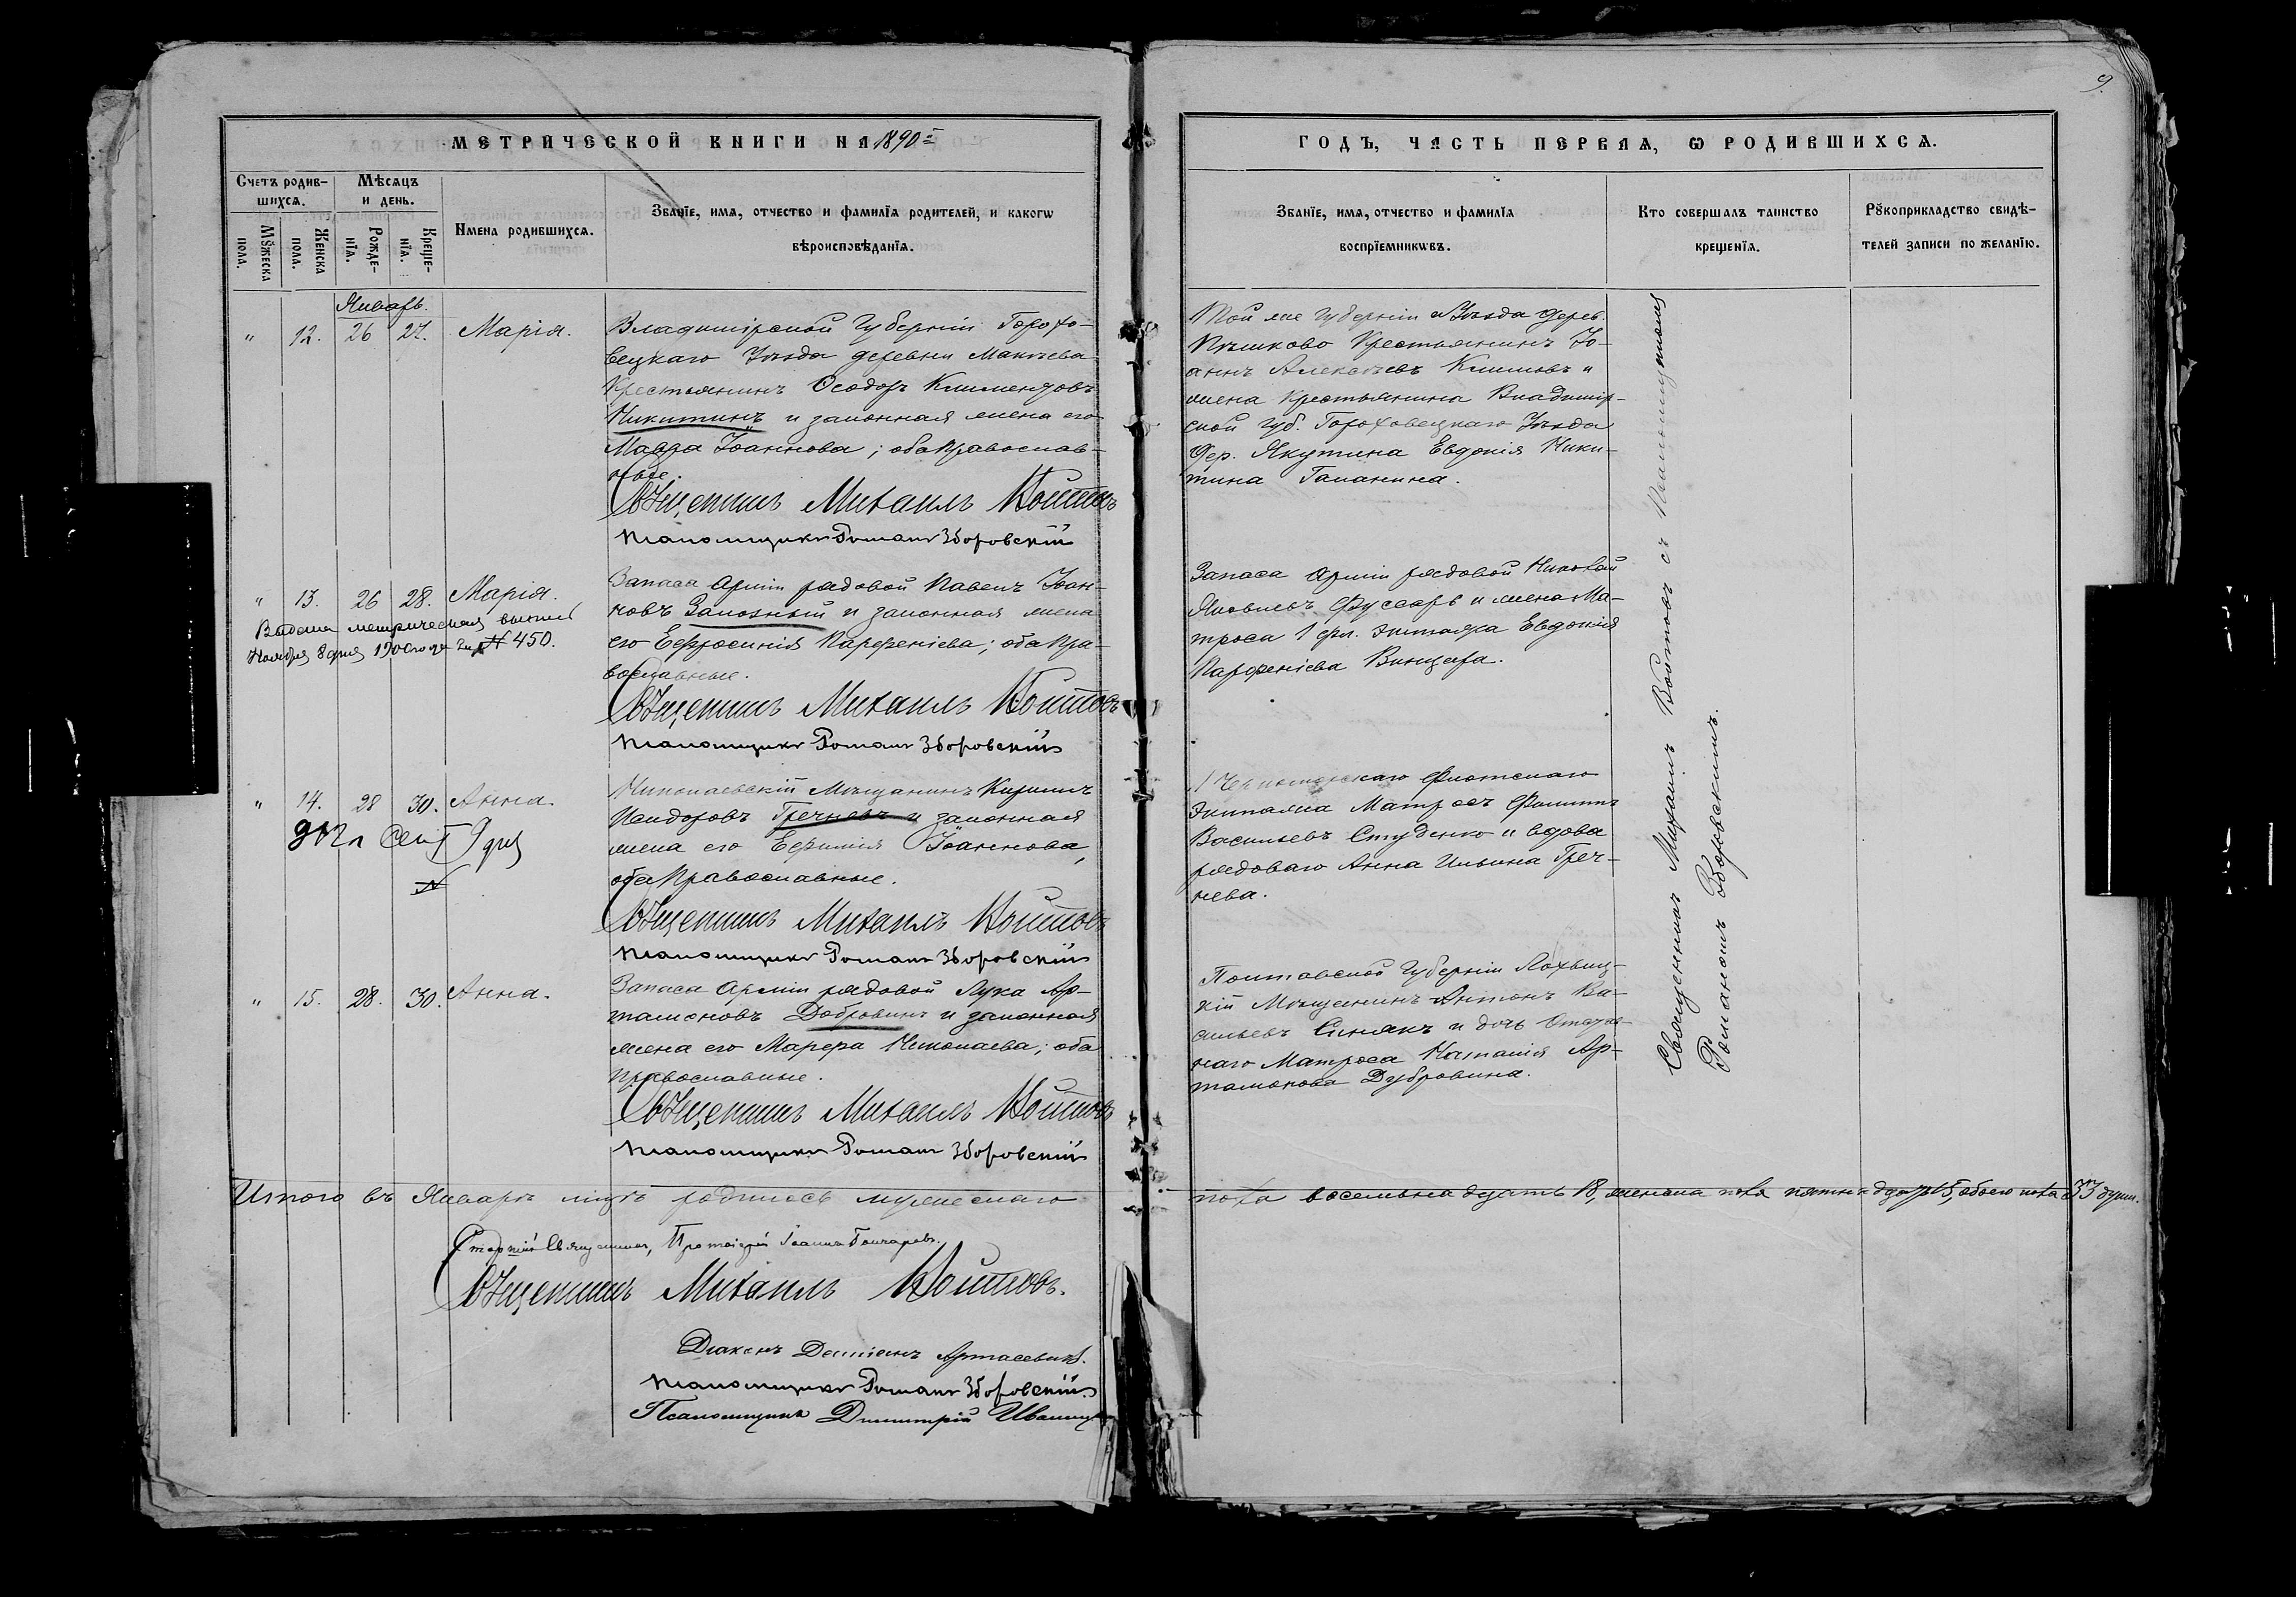 МЕТРИЧЕСКОЙ КНИГИ НА 1890 й
Счетъ родив-
шихся.
Мѣсяцъ
и день.
Мужеска
пола.
Женска
пола.
Рожде-
нія.
Креще-
нія.
Имена родившихся.
Званіе, имя, отчество и фамилія родителей, и какого
вѣроисповѣданія.
Январь.
" 12. 26 27. Марія.
Владимірской Губерніи Горохо-
вецкаго Уѣзда деревни
Крестьянинъ Ѳеодоръ Климентовъ
Никитинъ и законная жена его
Мавра Іоаннова; оба Православ-
ные.
Священникъ Михаилъ Войтовъ
Псаломщикъ Романъ Зборовскій
" 13. 26 28. Марія.
Выдана метрическая выпись
Ноября 8 дня 1900 года за № 450.
Запаса Арміи рядовой Павелъ Іоан-
новъ и законная жена
его Ефросинія Парфеніева; оба Пра-
вославные.
Священникъ Михаилъ Войтовъ
Псаломщикъ Романъ Зборовскій
" 14. 28 30. Анна.
Сент 9 дня
№
Николаевскій Мѣщанинъ Кириллъ
Исидоровъ Гречневъ и законная
жена его Ефимія Іоаннова,
оба Православные.
Священникъ Михаилъ Войтовъ
Псаломщикъ Романъ Зборовскій
" 15. 28. 30. Анна.
Запаса Арміи рядовой Лука Ар-
тамоновъ Добровинъ и законная
жена его Марфа Николаева; оба
Православные.
Священникъ Михаилъ Войтовъ
Псаломщикъ Романъ Зборовскій
Итого въ Январѣ мцѣ родилось мужескаго
Старшій Священникъ, Протоіерей Іоаннъ Гончаровъ.
Священникъ Михаилъ Войтовъ.
Діаконъ Даміанъ
Псаломщикъ Романъ Зборовскій
Псаломщикъ Димитрій
9.
ГОДЪ, ЧАСТЬ ПЕРВАЯ, Ѡ РОДИВШИХСЯ.
Званіе, имя, отчество и фамилія
воспріемниковъ.
Кто совершалъ таинство
крещенія.
Рукоприкладство свидѣ-
телей записи по желанію.
Той же Губерніи и Уѣзда дерев.
Крестьянинъ Іо-
аннъ Алексѣевъ Климовъ и
жена Крестьянина Владимір-
ской Губ. Гороховецкаго Уѣзда
Дер. Якутина Евдокія Ники-
тина Гананина.
Запаса Арміи рядовой Николай
Яковлевъ и жена Ма-
троса 1 фл. экипажа Евдокія
Парфеніева Винцера.
1 Черноморскаго Флотскаго
Экипажа Матросъ Филиппъ
Васильевъ Студенко и вдова
рядоваго Анна Ильина Греч-
нева.
Полтавской Губерніи Лохвиц-
кій Мѣщанинъ Антонъ Ва-
сильевъ Синякъ и дочь Отстав-
наго Матроса Наталія Ар-
тамонова Дубровина.
Священникъ Михаилъ Войтовъ съ Псаломщикомъ
Романомъ Зборовскимъ.
пола восемьнадцать 18, женска пола пятнадцать 15, обоего пола 33 души.